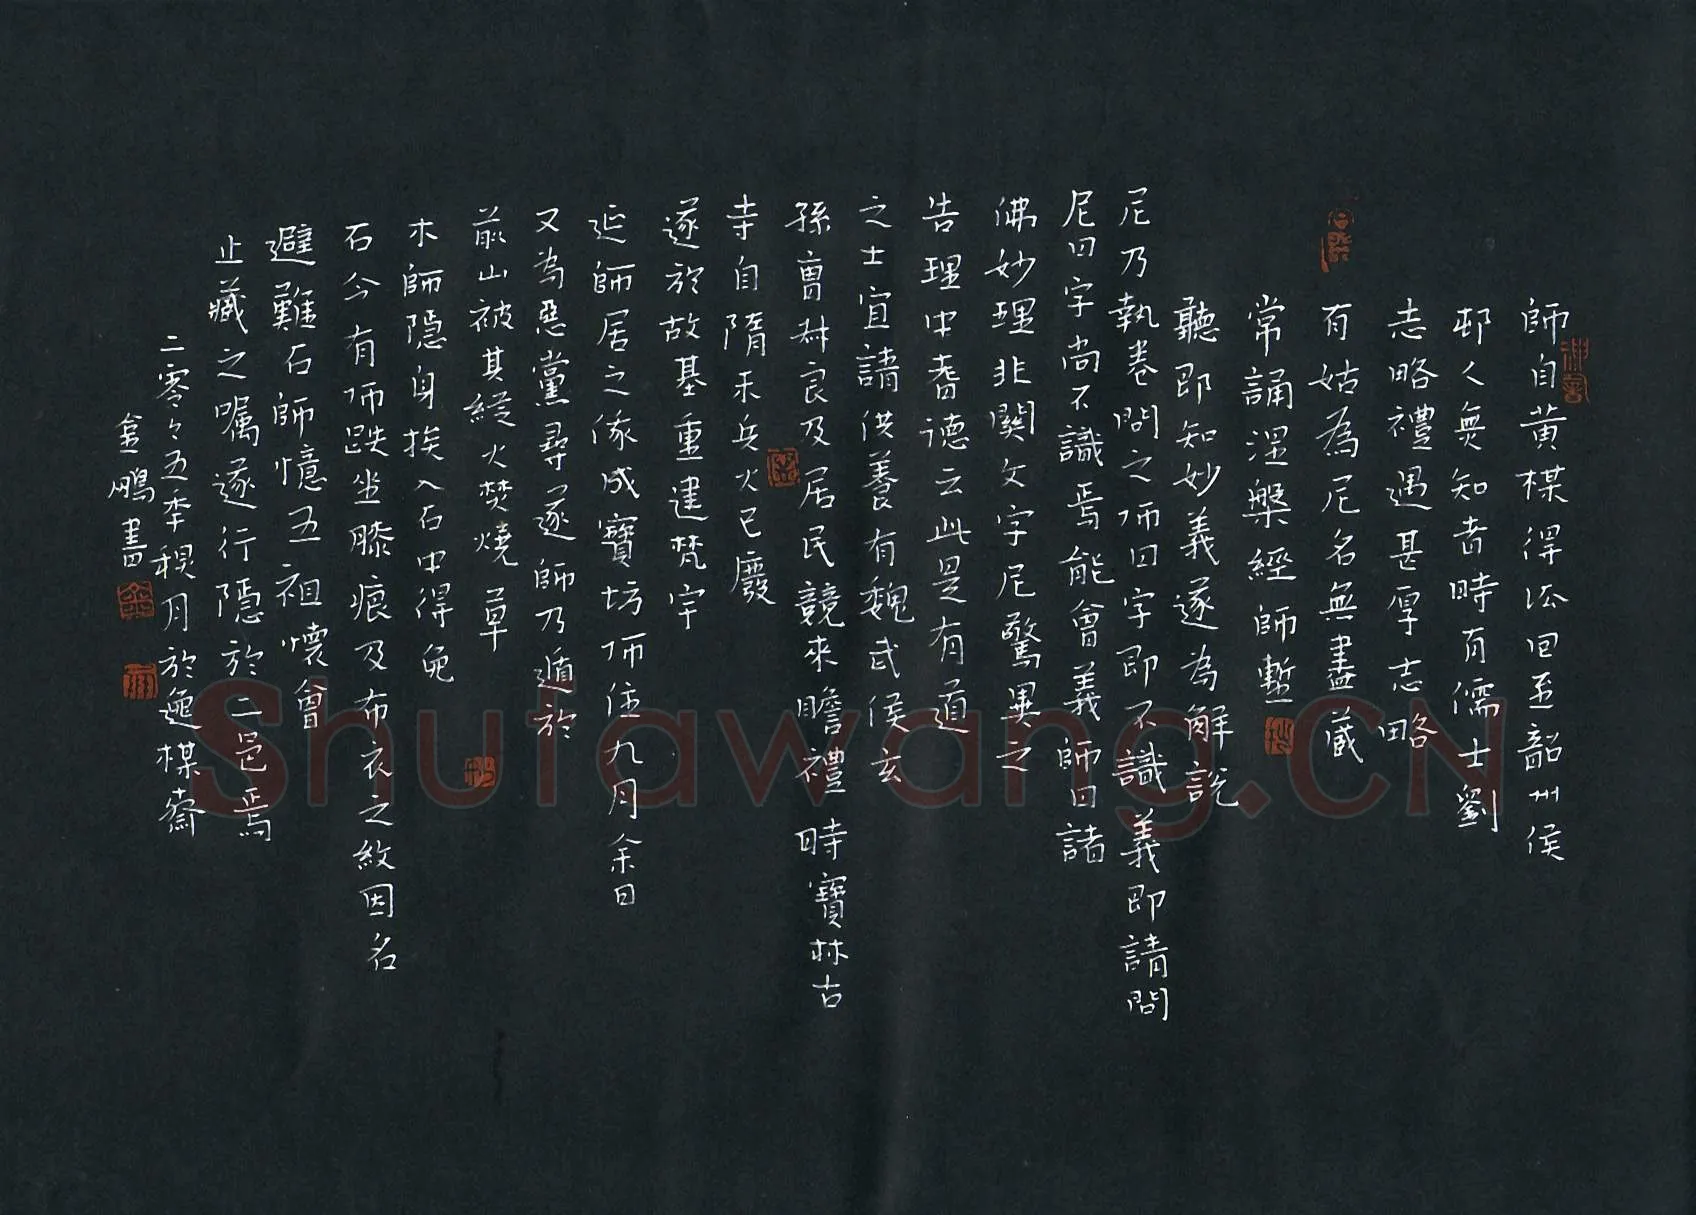 師自黄楳得法回至韶州侯
邨人無知者時有儒士劉
志略禮遇甚厚志略
有姑為尼名無盡藏
常誦涅槃經師暫
聽即知妙義遂為解説
尼乃執卷問之師曰字即不識義即請問
尼曰字尚不識焉能會義師曰諸
佛妙理非關文字尼驚異之
告理中耆德云此是有道
之士宜請供養有魏武侯玄
孫曹叔良及居民競來瞻禮時寶林古
寺自隋末兵火已廢
遂於故基重建梵宇
延師居之俄成寶坊師住九月余日
又為惡黨尋逐師乃遁於
前山被其縱火焚燒草
木師隱身挨入石中得免
石今有師趺坐膝痕及布衣之紋因名
避難石師憶五祖懷會
止藏之囑遂行隱於二邑焉
二零々五季榠月於逸楳齋
金鵬書
Shufawang.CN